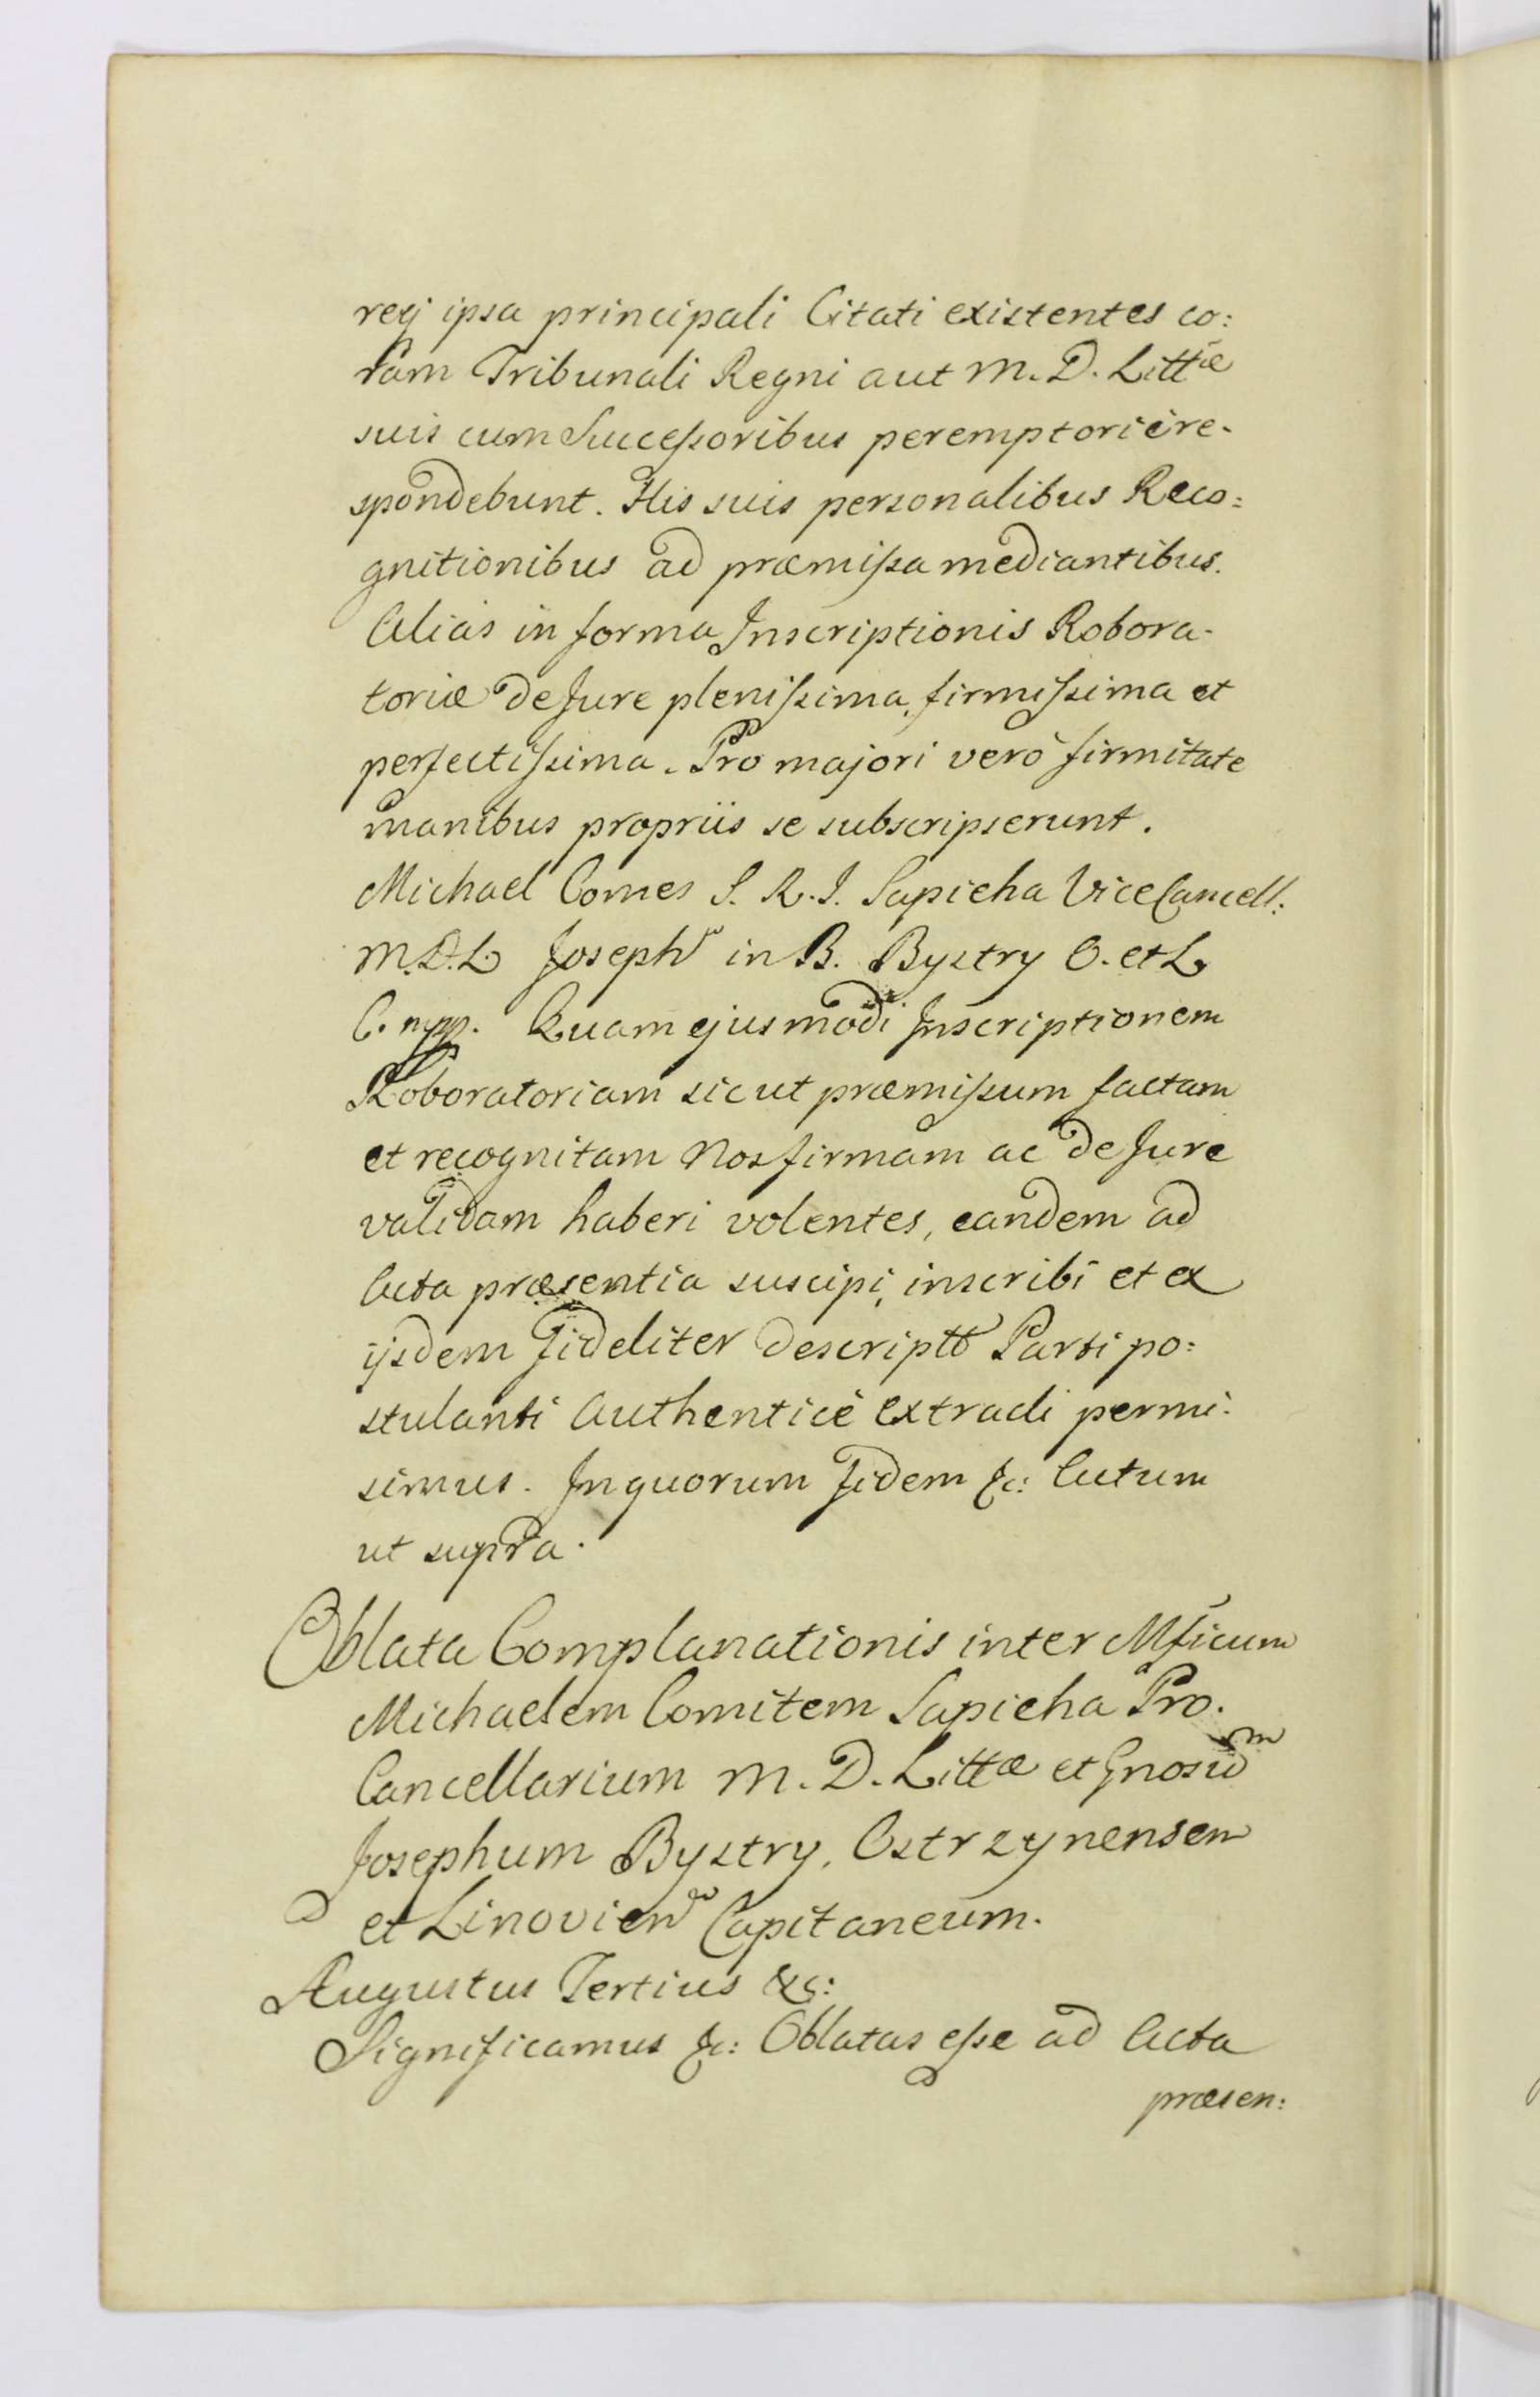 reij ipsa principali Citati existentes co:
ram Tribunali Regni aut M. D. Littæ
suis cum Successoribus peremptoriè re-
spondebunt. His suis personalibus Reco:
gnitionibus ad præmissa mediantibus.
Alias in forma Inscriptionis Robora-
toriæ de Jure plenissima, firmissima et
perfectissima. Pro majori verò firmitate
manibus propriis se subscripserunt.
Michael Comes S. R. I. Sapieha ViceCancell:
M.D.L. Josephus in B. Bystry O. et L.
C. mpp. Quam ejusmodi Inscriptionem
Roboratoriam sicut præmissum factam
et recognitam Nos firmam ac de Jure
validam haberi volentes, eandem ad
Acta præsentia suscipi, inscribi et ex
ijsdem fideliter descriptt Parti po:
stulanti Authenticè extradi permi:
simus. In quorum fidem &c: Actum
ut supra.
Oblata Complanationis inter Mficum
Michaelem Comitem Sapieha Pro.
Cancellarium M. D. Littæ et Gnosum
Josephum Bystry, Ostrzynensem
et Linovien Capitaneum.
Augustus Tertius &c:
Significamus &c: Oblatas esse ad Acta
præsen: